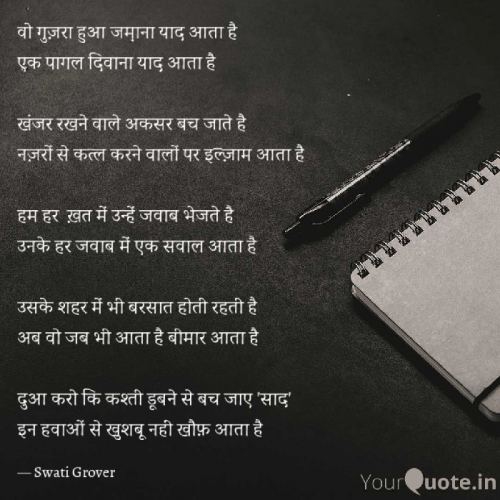 वो गुज़रा हुआ जम़ाना याद आता है
एक पागल दिवाना याद आता है
खंजर रखने वाले अकसर बच जाते है
नज़रों से कत्ल करने वालों पर इल्ज़ाम आता है
हम हर ख़त में उन्हें जवाब भेजते है
उनके हर जवाब में एक सवाल आता है
उसके शहर में भी बरसात होती रहती है
अब वो जब भी आता है बीमार आता है
दुआ करो कि कश्ती डूबने से बच जाए 'साद'
इन हवाओं से खुशबू नही खौफ़ आता है
— Swati Grover
YourQuote.in